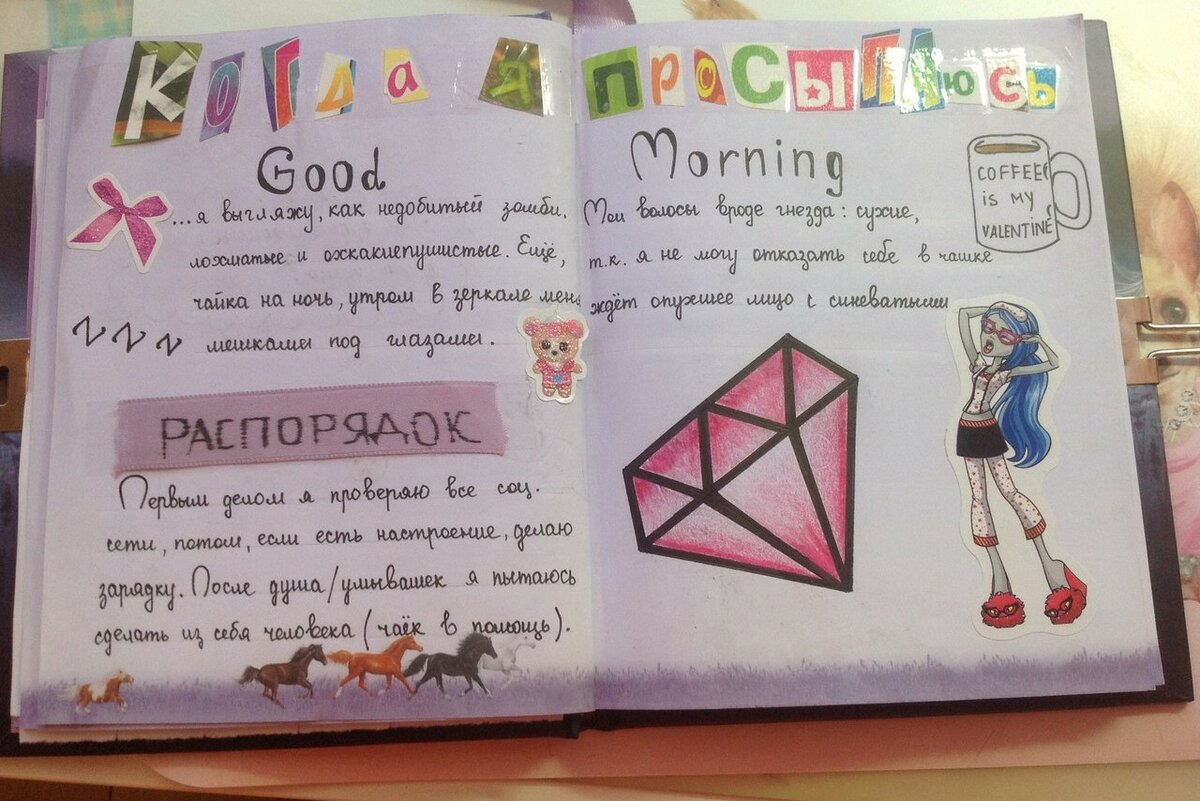 Когда я просыпаюсь
Good Morning
...я выгляжу, как недобитый зомби. Мои волосы вроде гнезда: сухие,
лохматые и охкакиепушистые. Ещё, т.к. я не могу отказать себе в чашке
чайка на ночь, утром в зеркале меня ждёт опухшее лицо с синеватыми
мешками под глазами.
COFFEE
is my
VALENTINE
z z z
РАСПОРЯДОК
Первым делом я проверяю все соц.
сети, потом, если есть настроение, делаю
зарядку. После душа/умывашек я пытаюсь
сделать из себя человека (чаёк в помощь).